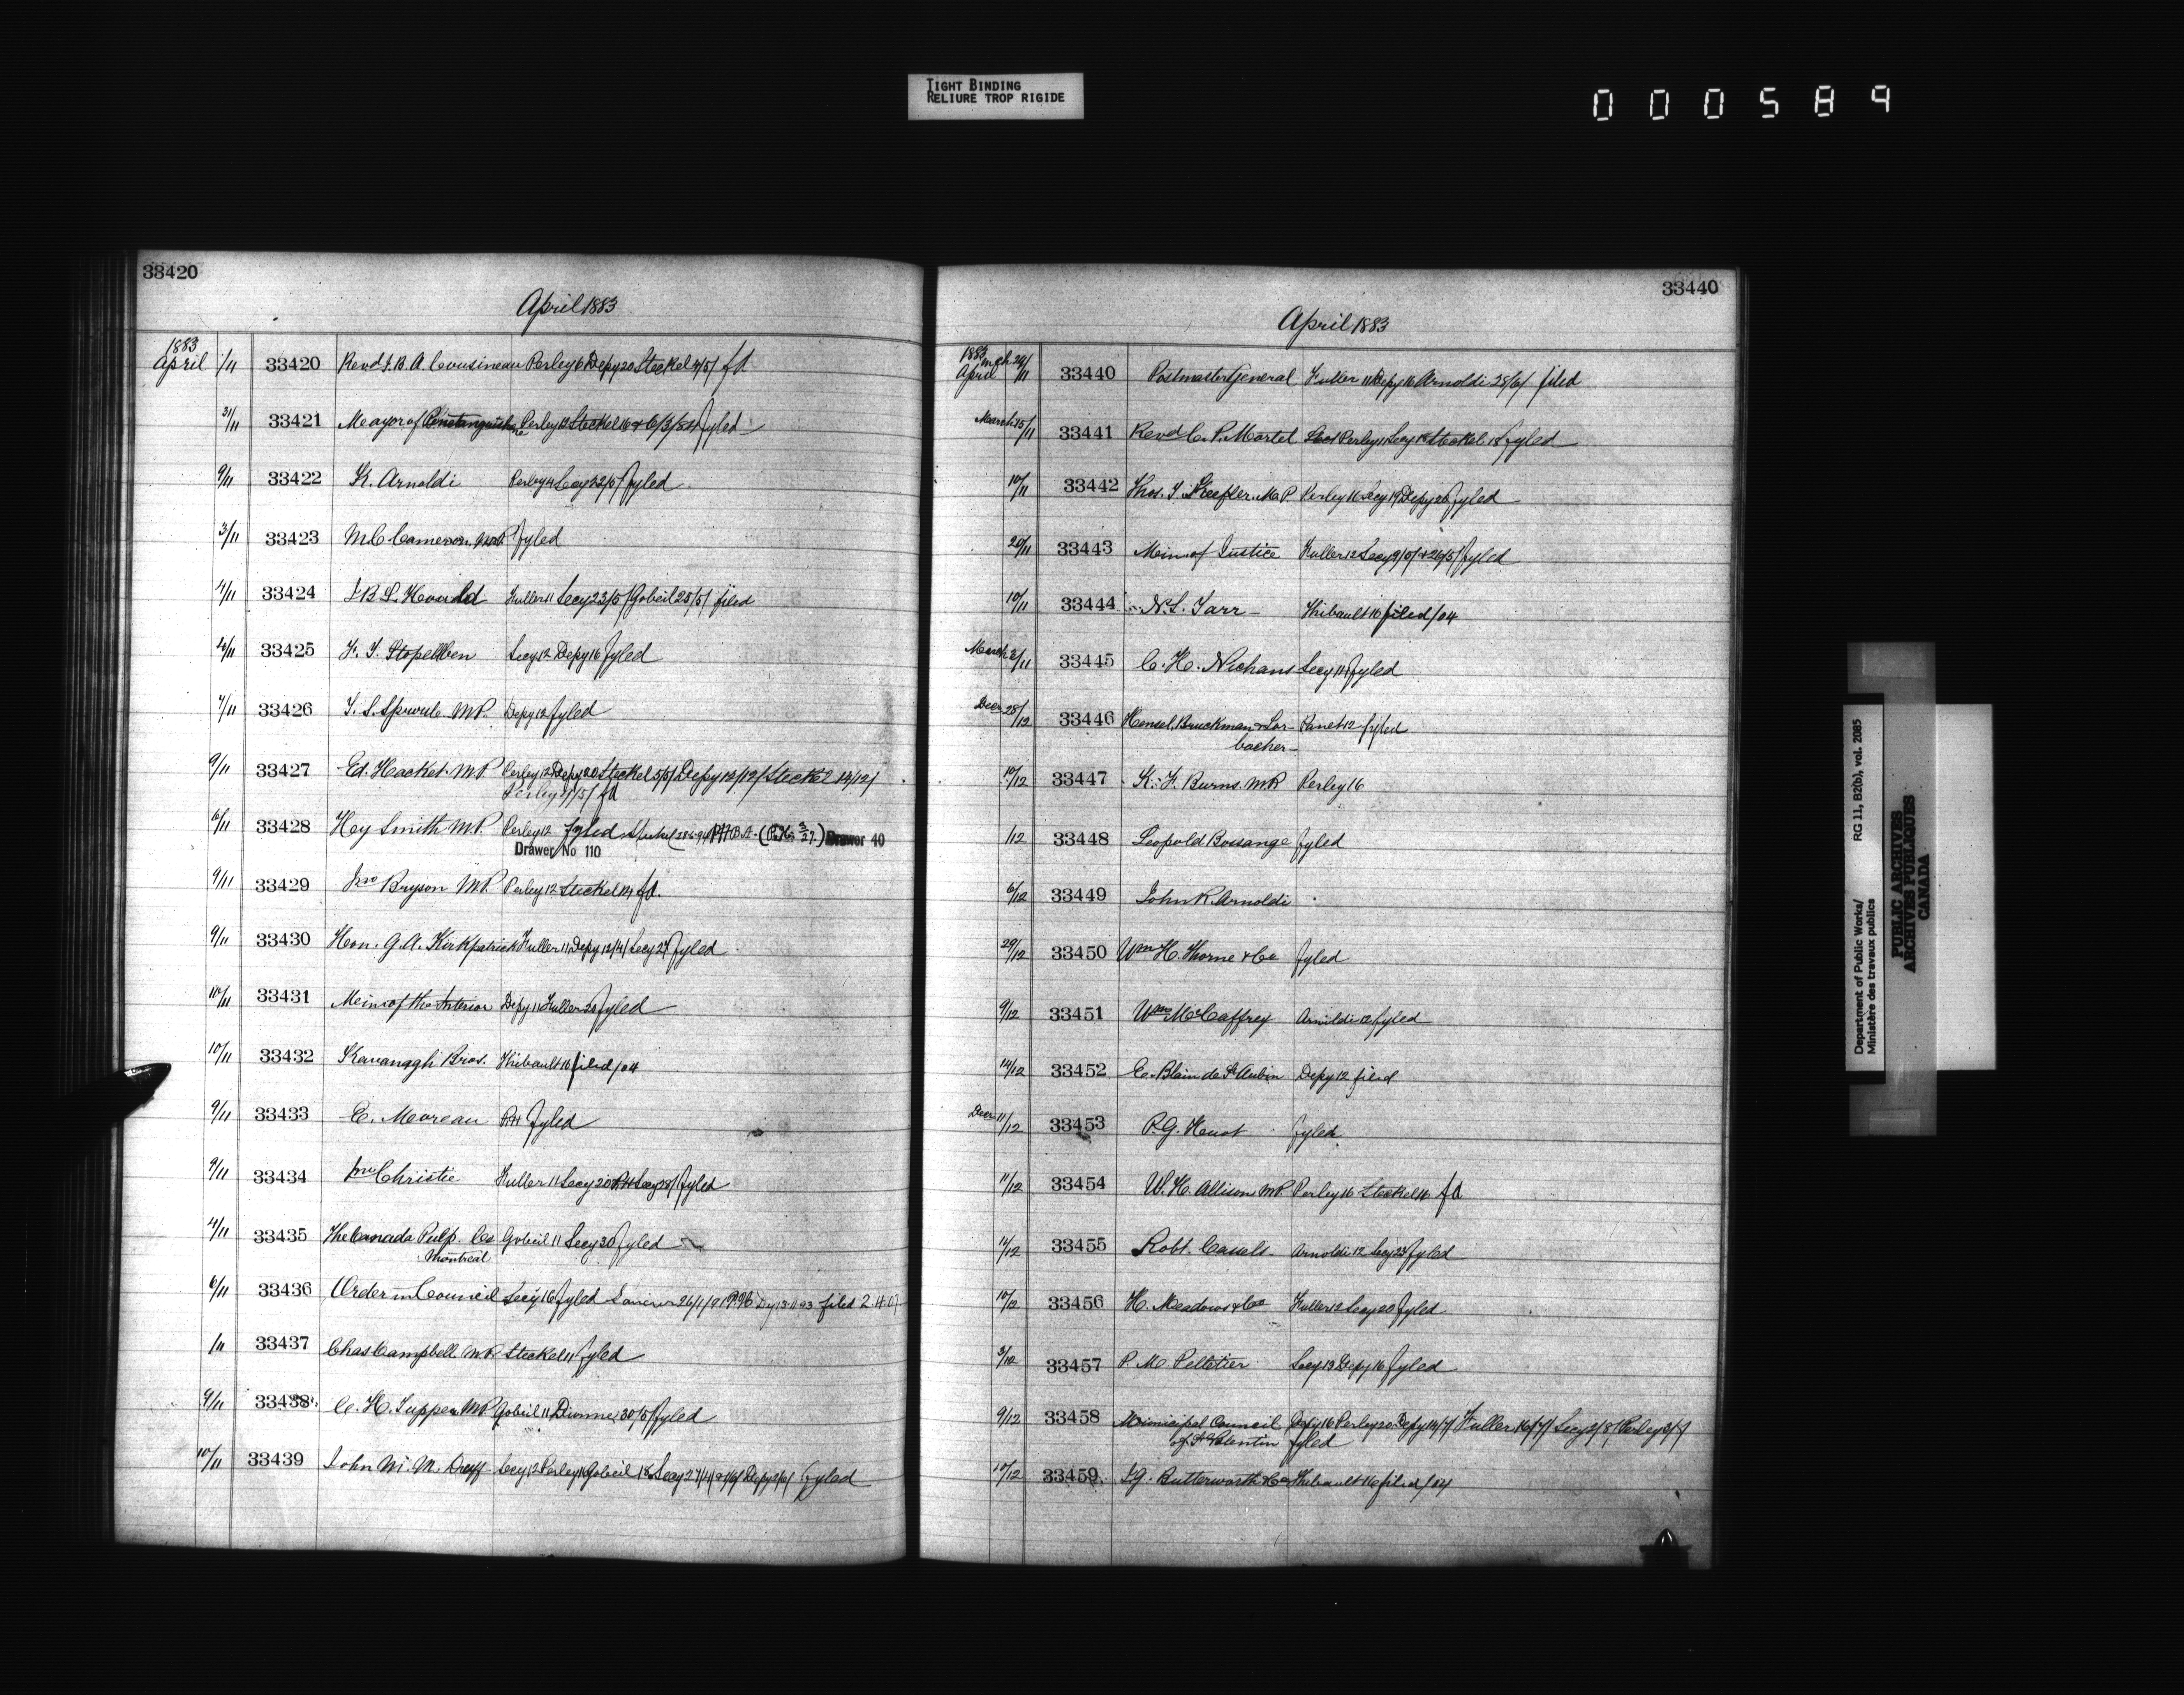 TIGHT BINDING
RELIURE TROP RIGIDE
000589
33420
April 1883
1883
April 1/11 33420 Revd J.B.A. Cousineau Perley 6 Depy 20 Steckel 4/5/ fd
31/11 33421 Mayor of Penetanguishene Perley 12 Steckel 16 & 6/3/84 fyled
9/11 33422 K. Arnoldi Perley 4 Secy 22/5/ fyled
3/11 33423 M.C. Cameron M.P. fyled
4/11 33424 J.B.S. Hould Fuller 11 Secy 23/5/ Gobeil 25/5/ filed
4/11 33425 F. J. Stopelben Secy 12 Depy 16 fyled
7/11 33426 T. S. Sproule M.P. Depy 12 fyled
9/11 33427 Ed. Hacket M.P. Perley 12 Depy 20 Steckel 5/5/ Depy 12/12/ Steckel 14/12/
Perley fd
6/11 33428 Hy Smith M.P. Perley 12 fyled Steckel Drawer 40
Drawer No 110
9/11 33429 Jno Bryson M.P. Perley 12 Steckel 14 fd.
9/11 33430 Hon. G.A. Kirkpatrick Fuller 11 Depy 12/4/ Secy 27 fyled
10/11 33431 Min. of the Interior Depy 11 Fuller 20 fyled
10/11 33432 Kavanagh Bros. Thibault 16 filed /04
9/11 33433 E. Moreau fyled
9/11 33434 Jno Christie Fuller 11 Secy 20 fyled
4/11 33435 The Canada Pulp. Co Gobeil 11 Secy 30 fyled
Montreal
6/11 33436 Order in Council Secy 16 fyled filed 2.4.07
1/11 33437 Chas Campbell M.P. Steckel 11 fyled
9/11 33438 C. H. Tupper M.P. Gobeil 11 Dionne 30/5/ fyled
10/11 33439 John M. M. Duff Secy 12 Perley 16 Gobeil 18 Secy Depy fyled
33440
April 1883
1883 mch 29/
April /11 33440 Postmaster General Fuller 11 Depy 16 Arnoldi 28/6/ filed
March 15/11 33441 Revd C. P. Martel Perley 11 Secy 13 Steckel 18 fyled
10/11 33442 Thos. T. Keefler M.P. Perley 16 Secy 19 Depy 20 fyled
20/11 33443 Min. of Justice Fuller 12 Secy 9/5/ & 26/5/ fyled
10/11 33444 N.S. Tarr Thibault 16 filed /04
March 2/11 33445 C. H. Nichans Secy 14 fyled
Decr 28/12 33446 Hensel, Bruckman & Lor-
bacher Panet 12 fyled
10/12 33447 K. F. Burns M.P. Perley 16
/12 33448 Leopold Bossange fyled
6/12 33449 John R Arnoldi
29/12 33450 Wm H. Thorne & Co fyled
9/12 33451 Wm McCaffrey Arnoldi 12 fyled
14/12 33452 E. Blain de St Aubin Depy 12 filed
Decr 11/12 33453 P.G. Huot fyled
11/12 33454 W. H. Allison M.P. Perley 16 Steckel 16 fd
11/12 33455 Robt. Cassels Arnoldi 12 Secy 23 fyled
10/12 33456 H. Meadows & Co Fuller 12 Secy 20 fyled
3/12 33457 P. M. Pelletier Secy 13 Depy 16 fyled
9/12 33458 Municipal Council Depy 16 Perley 20 Depy 14/7/ Fuller 16/7/ Secy 2/8/ Perley
of St Valentin fyled
10/12 33459 J.G. Butterworth & Co Thibault 16 filed /04
Department of Public Works/
Ministère des travaux publics
RG 11, B2(b), vol. 2085
PUBLIC ARCHIVES
ARCHIVES PUBLIQUES
CANADA